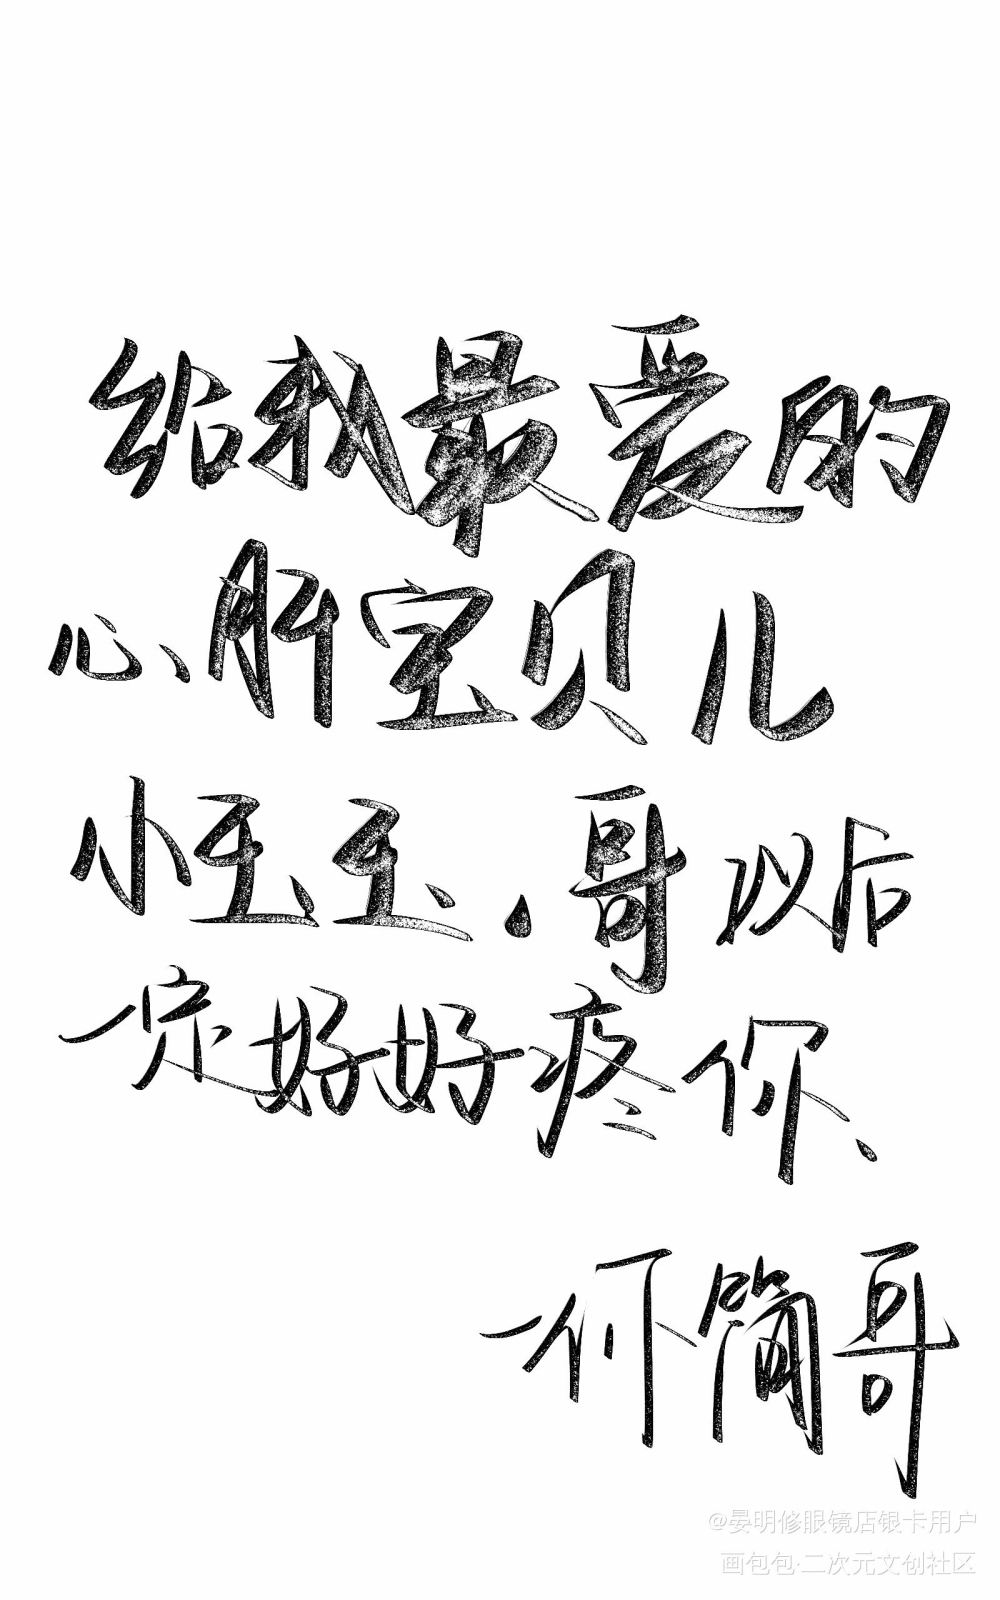 给我最爱的
心肝宝贝儿
小玉玉,哥以后
一定好好疼你、
一何简哥
@晏明修眼镜店银卡用户
画包包·二次元文创社区